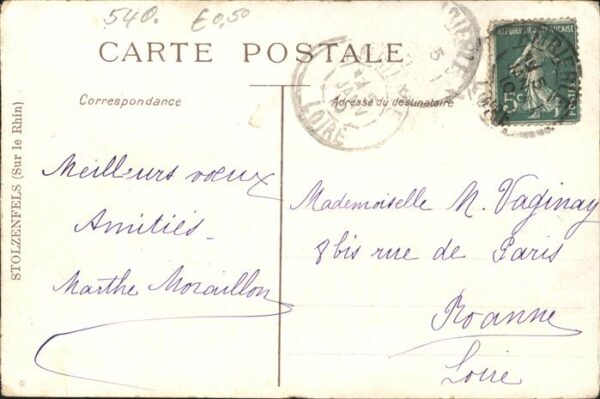 540. €0,50
CARTE POSTALE
Correspondance
Adresse du destinataire
STOLZENFELS (Sur le Rhin)
REPUBLIQUE FRANÇAISE
5c
AMBIERLE
LOIRE
JANV
Meilleurs vœux
Amitiés
Marthe Moraillon
Mademoiselle M. Vaginay
8 bis rue de Paris
Roanne
Loire